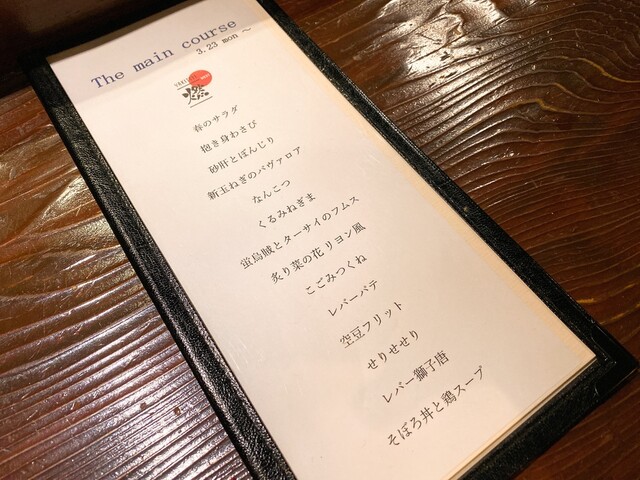 The main course
3.23 mon ～
燃
春のサラダ
抱き身わさび
砂肝とぼんじり
新玉ねぎのバヴァロア
なんこつ
くるみねぎま
蛍烏賊とターサイのフムス
炙り菜の花リヨン風
こごみつくね
レバーパテ
空豆フリット
せりせせり
レバー獅子唐
そぼろ丼と鶏スープ